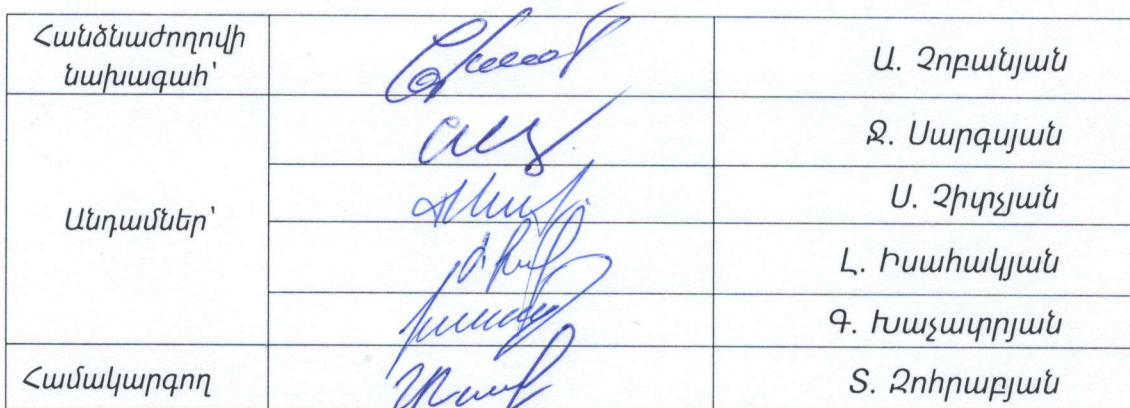 Հանձնաժողովի
նախագահ՝
Ա. Չոբանյան
Ջ. Սարգսյան
Անդամներ՝
Ս. Չիտչյան
Լ. Իսահակյան
Գ. Խաչատրյան
Համակարգող
Տ. Զոհրաբյան